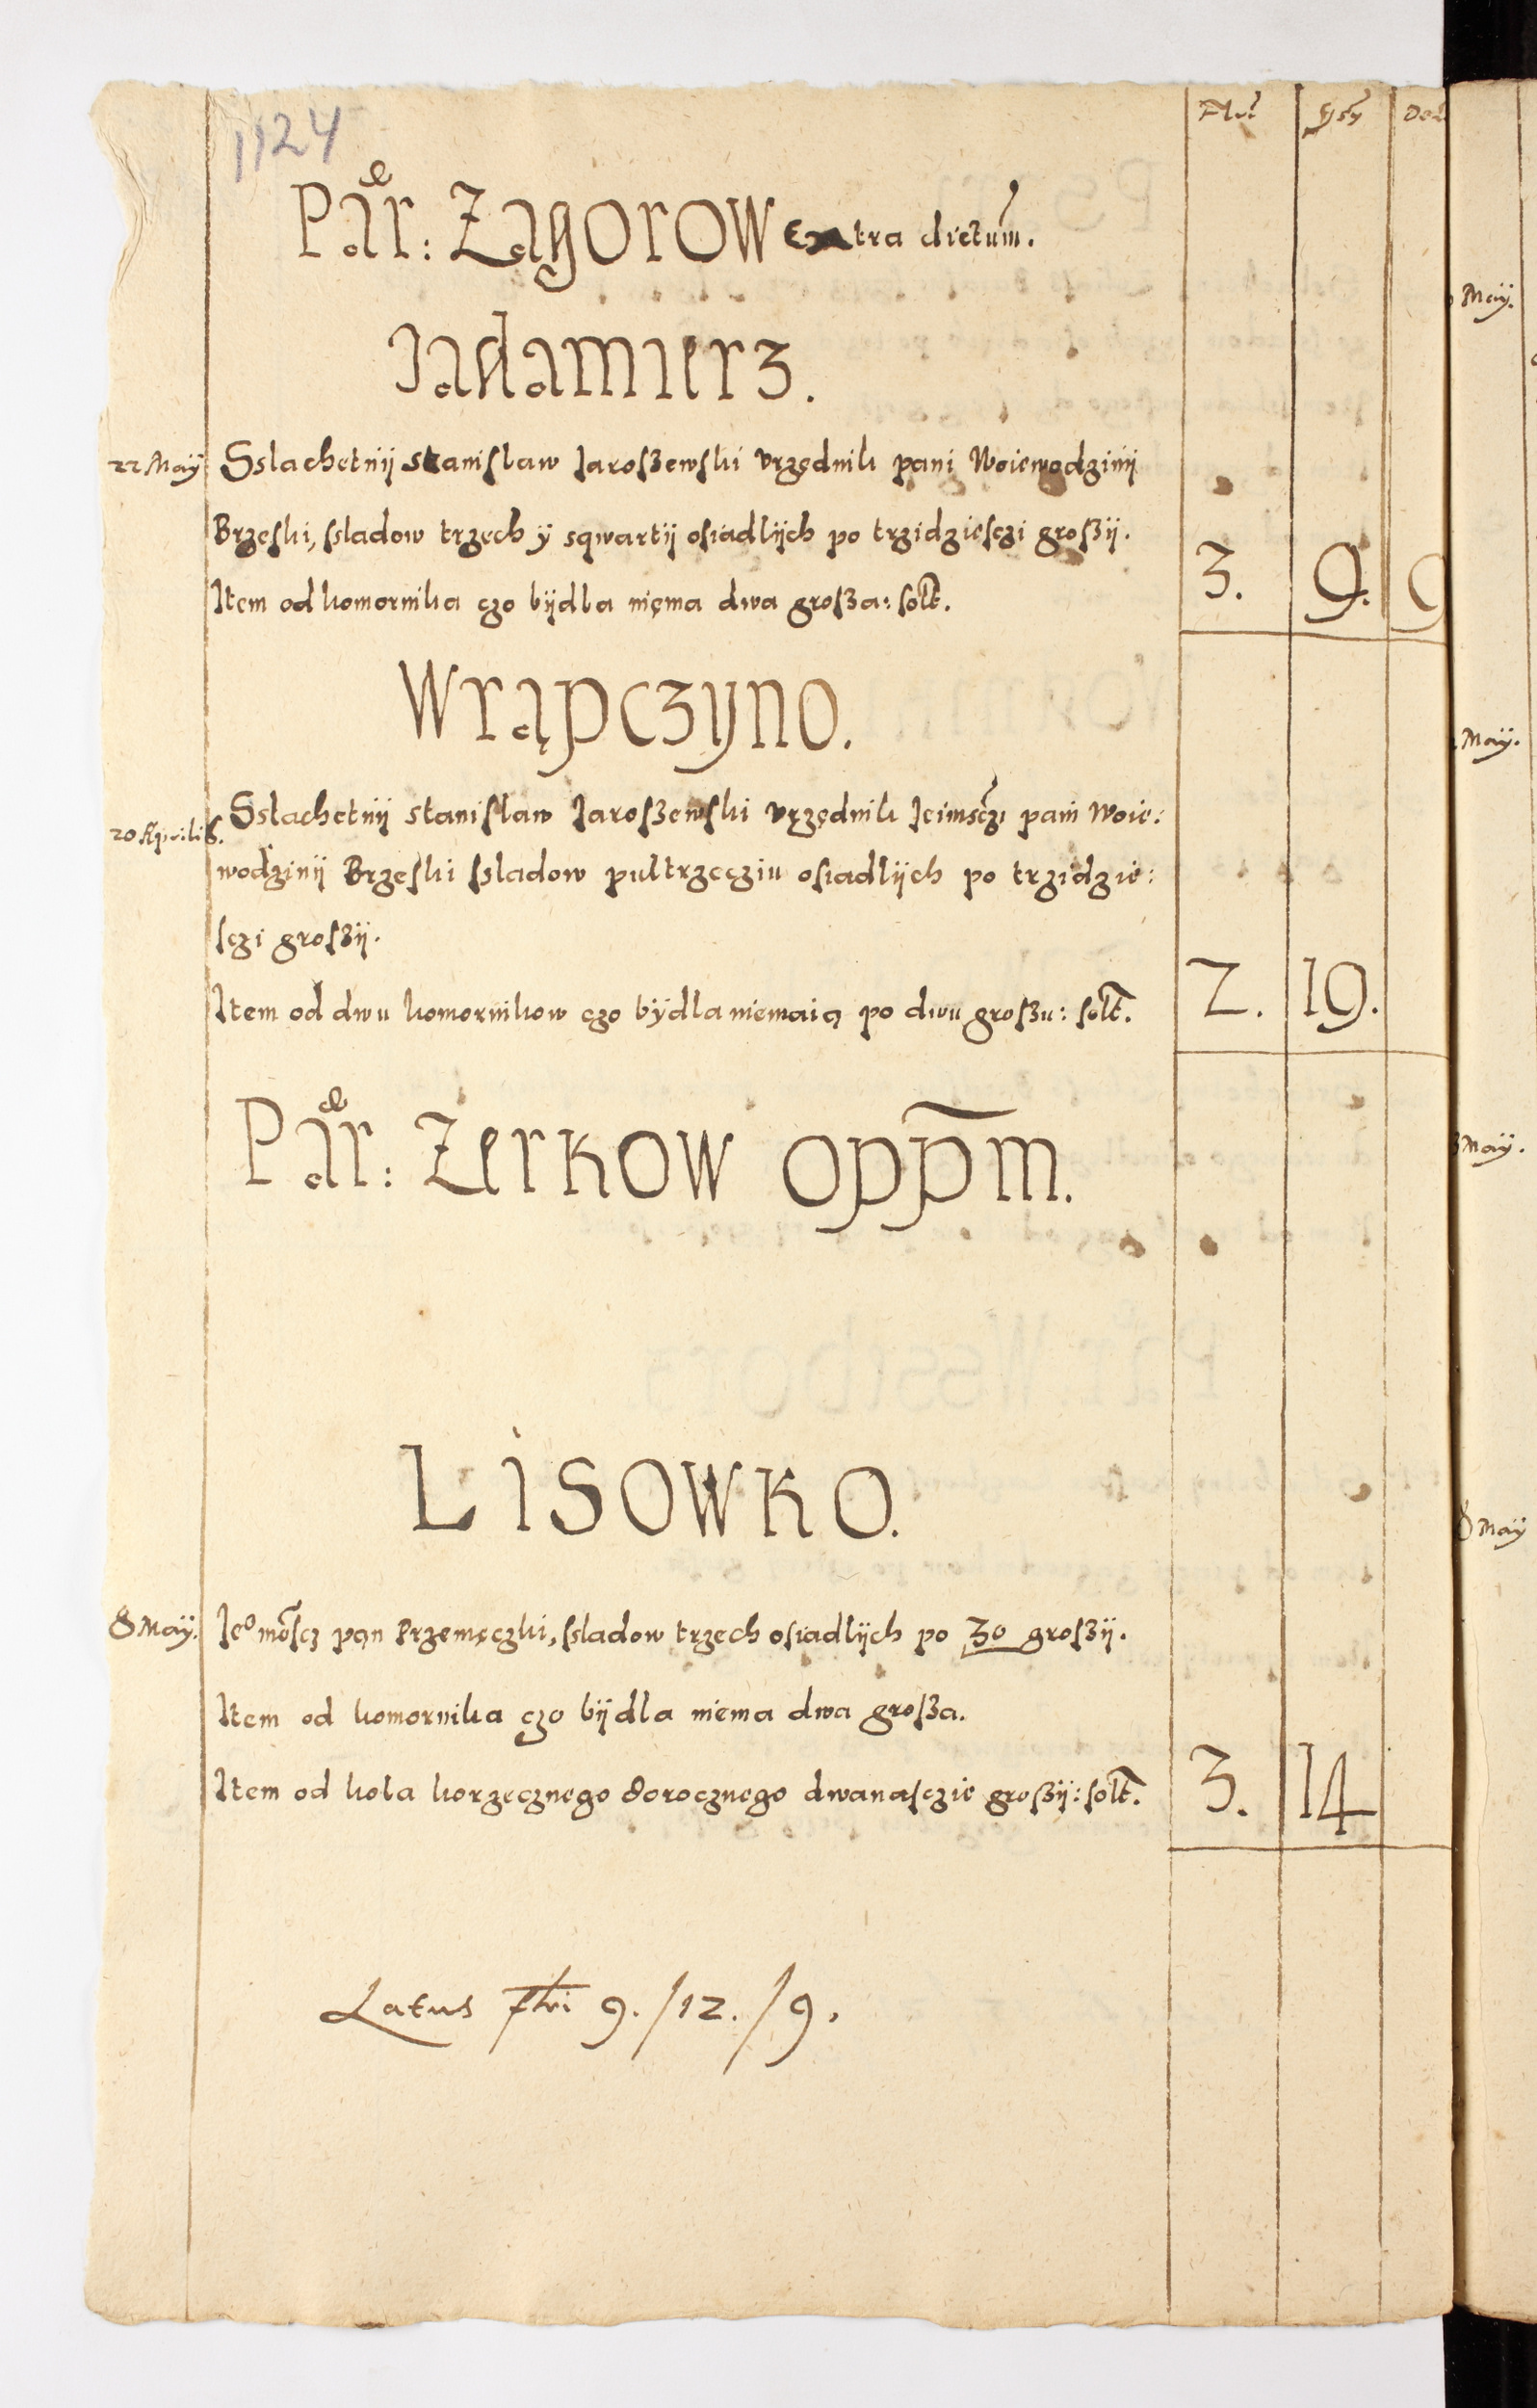 1124
Flor Gry Den
Par: Zagorow Extra dictum.
Iadamierz.
22 Maij Sslachetnij Stanisław Jaroszewski Vrzędnik pani Woiewodzinij
Brzeski, ssladow trzech ẏ sqwartij osiadlijch po trzidziesczi groszij.
Item od komornika czo bijdla nięma dwa grosza: solt.
3. 9. 9
Wrąpczyno.
20 Aprilis. Sslachetnij Stanisław Jaroszewski Vrzędnik Jeimsczi pani Woie:
wodzinij Brzeski ssladow pultrzecziu osiadlijch po trzidzie:
sczi groszij.
Item od dwu komornikow czo bydla niemaią po dwu groszu: solt. 2. 19.
Par: Zerkow oppm.
Lisowko.
8 Maij. Jeo moscz pan Przemęczki, ssladow trzech osiadlijch po 30 groszij.
Item od komornika czo bijdla niema dwa grosza.
Item od kola korzecznego dorocznego dwanasczie groszij: solt. 3. 14
Latus flori 9./12./9.
Maij.
Maij.
Maij.
8 Maij